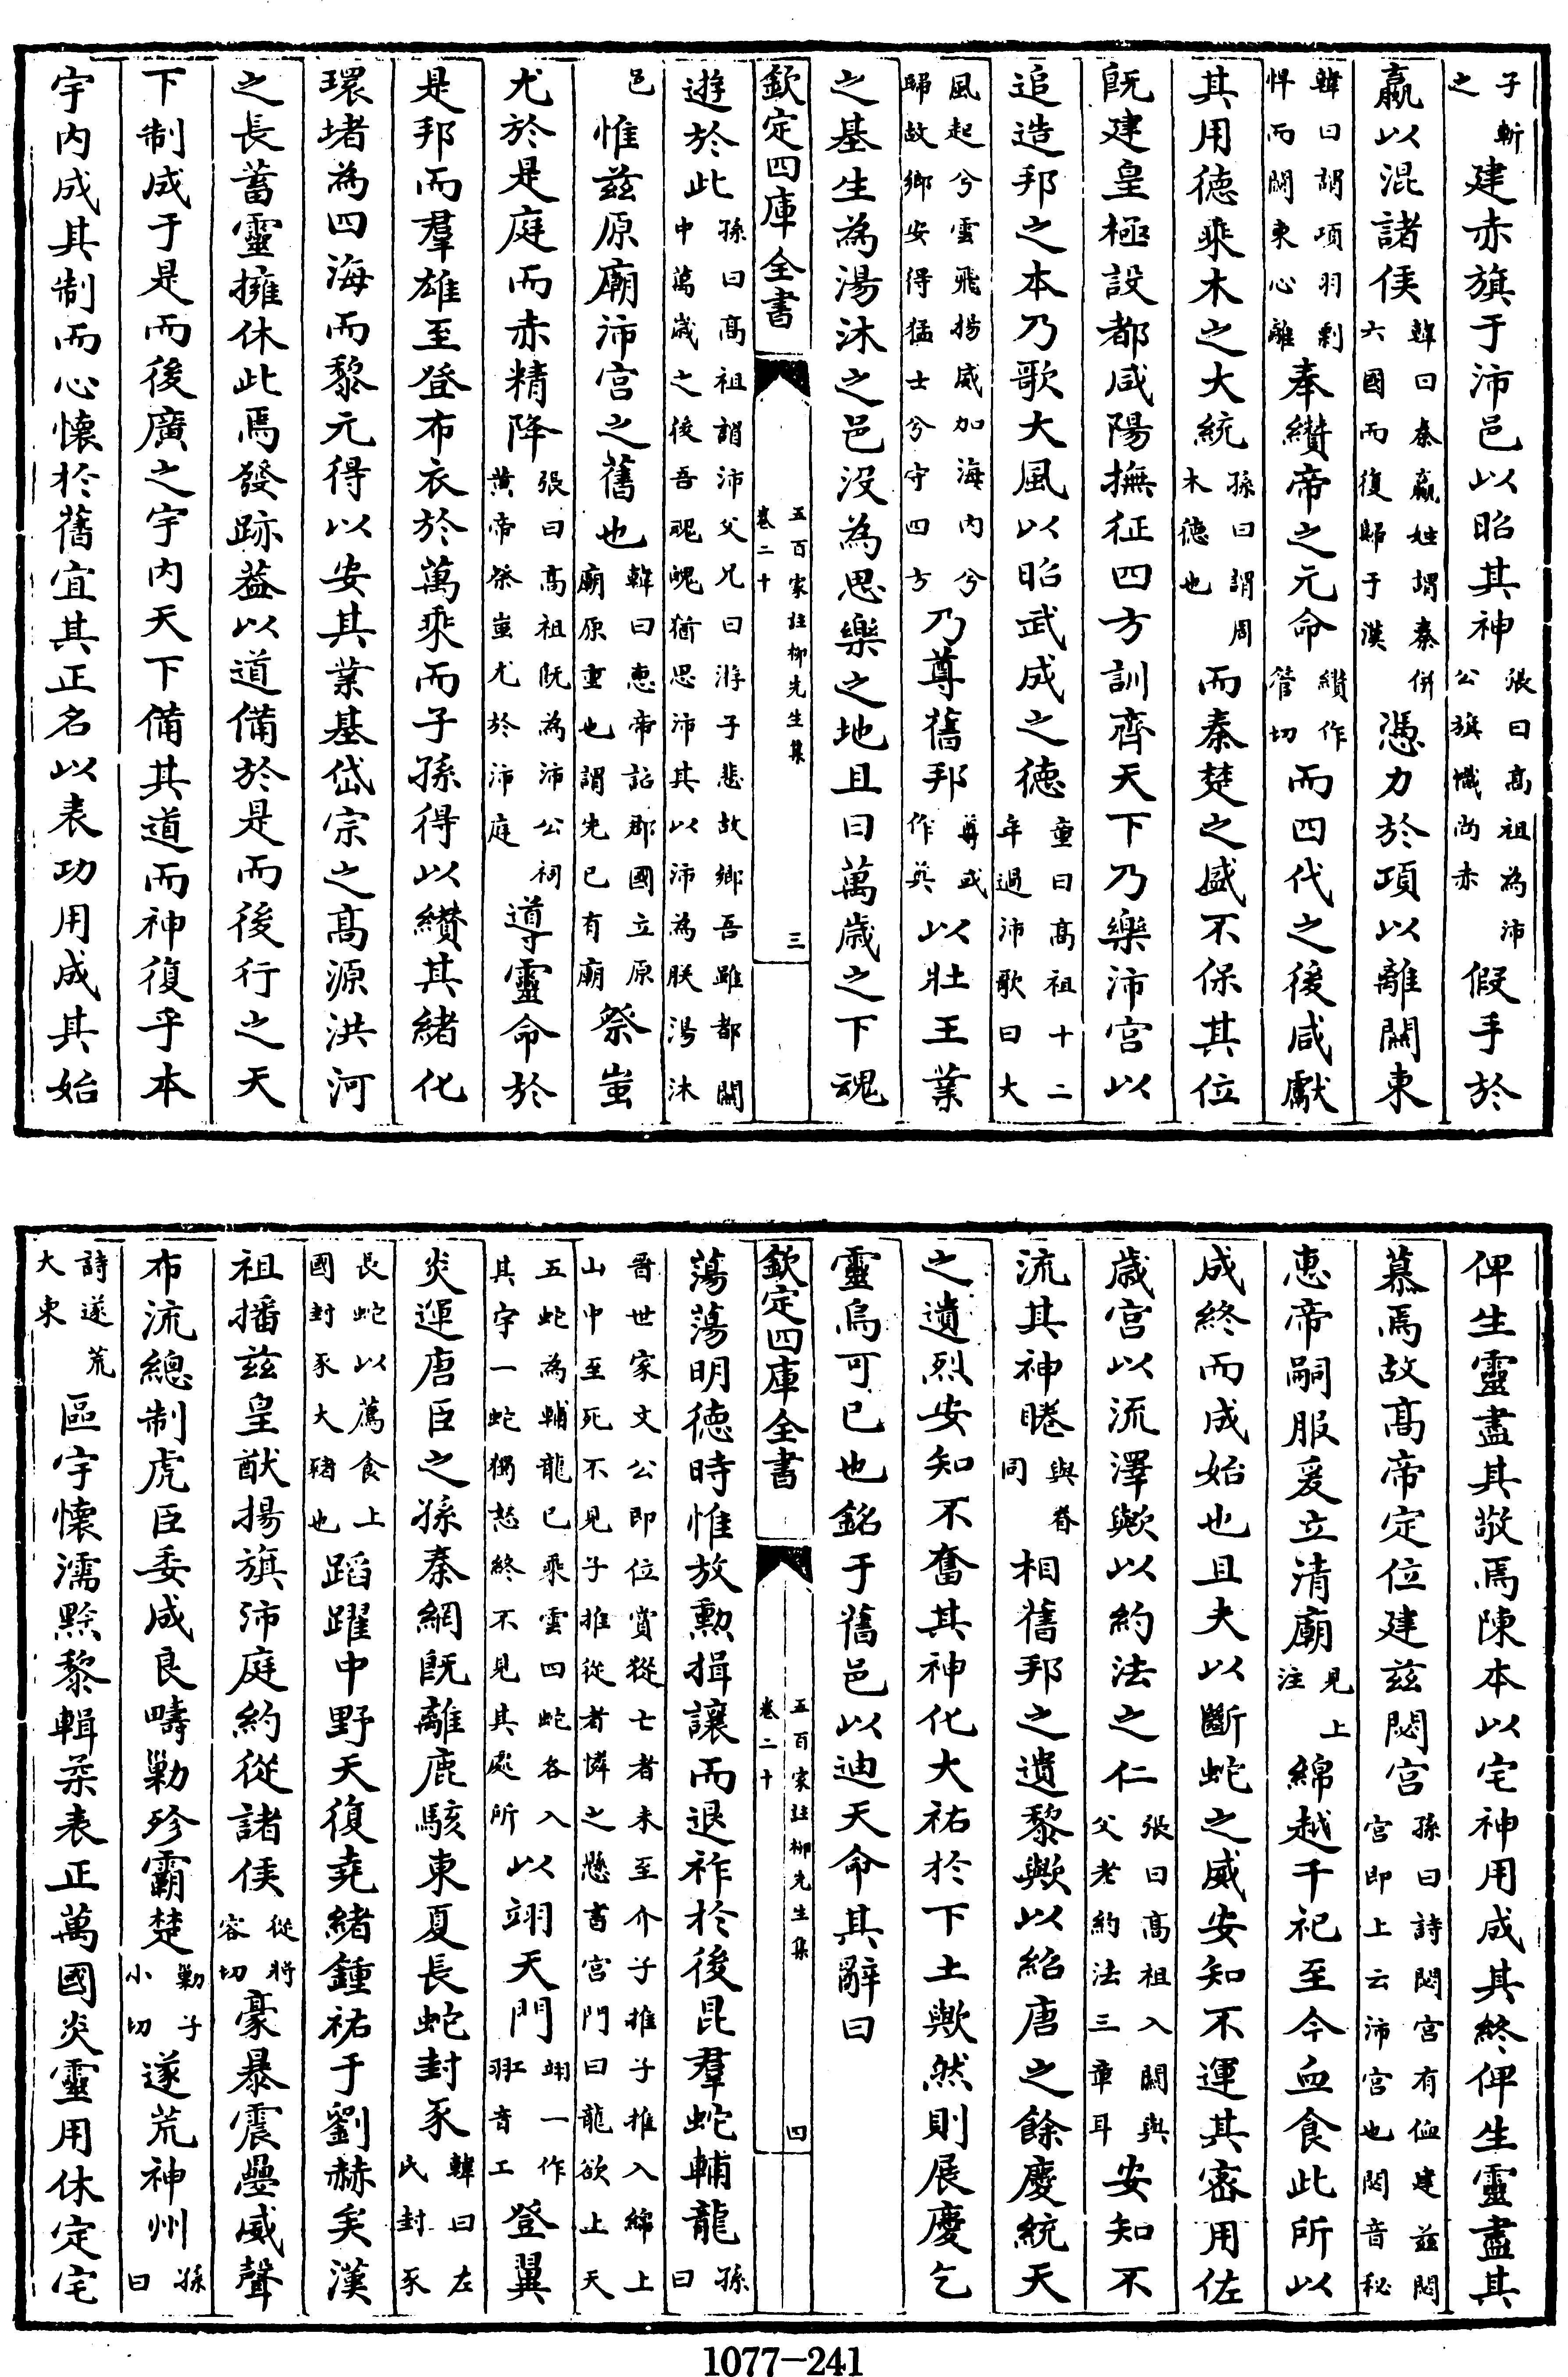 子斬之建赤旗于沛邑以昭其神張曰髙祖為沛公旗幟尚赤假手於
嬴以混諸侯韓曰秦嬴姓謂秦併六國而復歸于漢憑力於項以離闗東
韓曰謂項羽剽悍而闗東心離奉纘帝之元命纘作管切而四代之後咸獻
其用徳乘木之大統孫曰謂周木德也而秦楚之盛不保其位
既建皇極設都咸陽撫征四方訓齊天下乃樂沛宫以
追造邦之本乃歌大風以昭武成之徳童曰髙祖十二年過沛歌曰大
風起兮雲飛揚威加海内兮歸故鄉安得猛士兮守四方乃尊舊邦尊或作奠以壯王業
之基生為湯沐之邑没為思樂之地且曰萬歲之下魂
欽定四庫全書
五百家註柳先生集
卷二十
三
遊於此孫曰髙祖謂沛父兄曰游子悲故鄉吾雖都闗中萬歲之後吾魂魄猶思沛其以沛為朕湯沐
邑惟兹原廟沛宫之舊也韓曰惠帝詔郡國立原廟原重也謂先已有廟祭蚩
尤於是庭而赤精降張曰髙祖既為沛公祠黄帝祭蚩尤於沛庭導靈命於
是邦而羣雄至登布衣於萬乘而子孫得以纘其緒化
環堵為四海而黎元得以安其業基岱宗之髙源洪河
之長蓄靈擁休此焉發跡葢以道備於是而後行之天
下制成于是而後廣之宇内天下備其道而神復乎本
宇内成其制而心懷於舊宜其正名以表功用成其始
俾生靈盡其敬焉陳本以宅神用成其終俾生靈盡其
慕焉故髙帝定位建兹閟宫孫曰詩閟宫有侐建兹閟宫即上云沛宫也閟音秘
惠帝嗣服爰立清廟見上注綿越千祀至今血食此所以
成終而成始也且夫以斷蛇之威安知不運其密用佐
歲宫以流澤歟以約法之仁張曰髙祖入闗與父老約法三章耳安知不
流其神睠與眷同相舊邦之遺黎歟以紹唐之餘慶統天
之遺烈安知不奮其神化大祐於下土歟然則展慶乞
靈烏可已也銘于舊邑以迪天命其辭曰
欽定四庫全書
五百家註柳先生集
卷二十
四
蕩蕩明徳時惟放勲揖讓而退祚於後昆羣蛇輔龍孫曰
晉世家文公即位賞從亡者未至介子推子推入綿上山中至死不見子推從者憐之懸書宫門曰龍欲上天
五蛇為輔龍已乘雲四蛇各入其宇一蛇獨怨終不見其處所以翊天門翊一作羾音工登翼
炎運唐臣之孫秦網既離鹿駭東夏長蛇封豕韓曰左氏封豕
長蛇以薦食上國封豕大豬也蹈躍中野天復堯緒鍾祐于劉赫矣漢
祖播兹皇猷揚旗沛庭約從諸侯從將容切豪暴震疊威聲
布流總制虎臣委成良疇勦殄霸楚勦子小切遂荒神州孫曰
詩遂荒大東區宇懷濡黔黎輯柔表正萬國炎靈用休定宅
1077-241